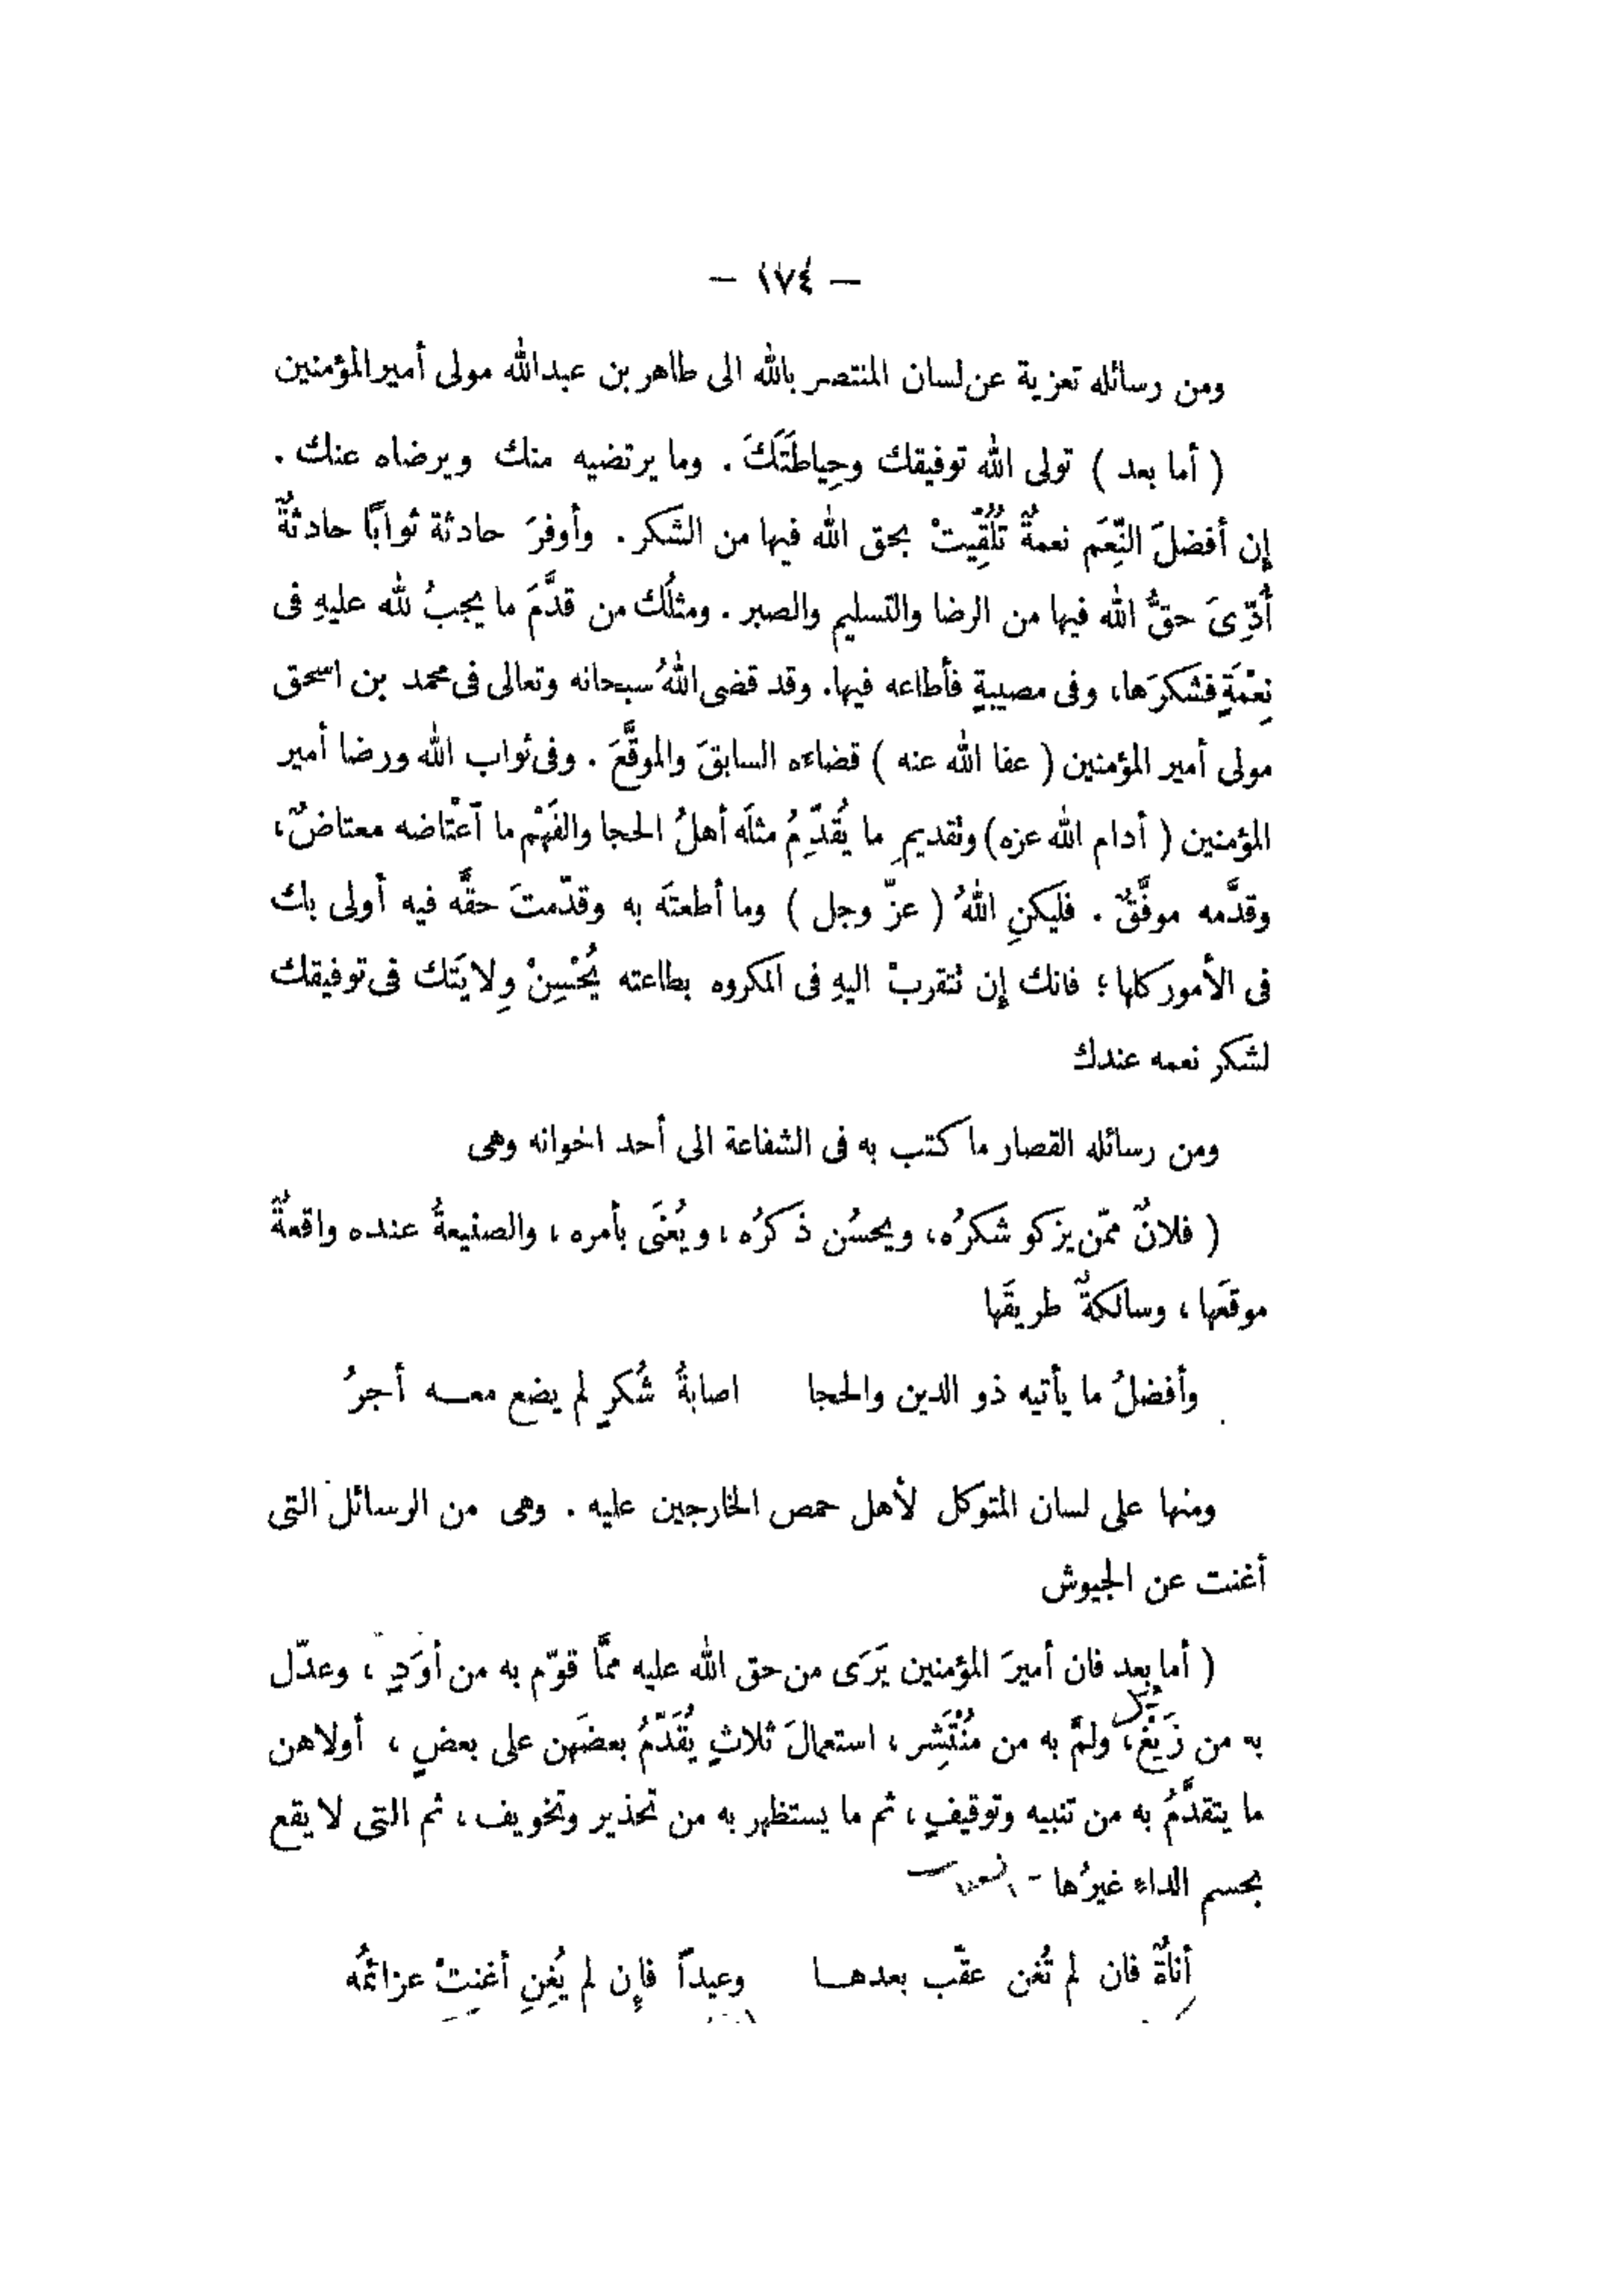 — ١٧٤ —
ومن رسائله تعزية عن لسان المنتصر بالله الى طاهر بن عبدالله مولى أمير المؤمنين
( أما بعد ) تولى الله توفيقك وحِياطَتَكَ . وما يرتضيه منك ويرضاه عنك .
إن أفضلَ النِّعَم نعمةٌ تُلُقِّيتْ بحق الله فيها من الشكر . وأوفرَ حادثة ثواباً حادثةٌ
أُدِّىَ حقُّ الله فيها من الرضا والتسليم والصبر . ومثلُك من قدَّمَ ما يجبُ لله عليهِ فى
نِعْمَةٍ فشكرَها، وفى مصيبةٍ فأطاعه فيها. وقد قضى اللهُ سبحانه وتعالى فى محمد بن اسحق
مولى أمير المؤمنين ( عفا الله عنه ) قضاءه السابقَ والموقَّعَ . وفى ثواب الله ورضا أمير
المؤمنين ( أدام الله عزه ) وتقديمِ ما يُقدِّمُ مثلَه أهلُ الحجا والفَهْم ما آعْتاضه معتاضٌ،
وقدَّمه موفَّقٌ . فليكنِ اللهُ ( عزّ وجل ) وما أطعتَه به وقدّمتَ حقَّه فيه أولى بك
فى الأمور كلها ؛ فانك إن تتقربْ اليهِ فى المكروه بطاعته يُحْسِنْ وِلايَتَك فى توفيقك
لشكر نعمه عندك
ومن رسائله القصار ما كتب به فى الشفاعة الى أحد اخوانه وهى
( فلانٌ ممّن يزكو شكرُه، ويحسُن ذكرُه ، ويُعْنَى بأمره ، والصنيعةُ عنده واقعةٌ
موقعَها ، وسالكةٌ طريقَها
وأفضلُ ما يأتيه ذو الدين والحجا اصابةُ شُكرٍ لم يضع معه أجرُ
ومنها على لسان المتوكل لأهل حمص الخارجين عليه . وهى من الرسائل التى
أغنت عن الجيوش
( أما بعد فان أميرَ المؤمنين يَرَى من حق الله عليه ممَّا قوّم به من أوَدٍ ، وعدّل
به من زَيْغ، ولمَّ به من مُنْتَشِر ، استعمالَ ثلاثٍ يُقَدّمُ بعضَهن على بعضٍ ، أولاهن
ما يتقدَّمُ به من تنبيه وتوقيفٍ ، ثم ما يستظهر به من تحذير وتخويف ، ثم التى لا يقع
بحسم الداء غيرُها -
أناةٌ فان لم تُغن عقّب بعدها وعيداً فإن لم يُغنِ أغنتْ عزائمُه